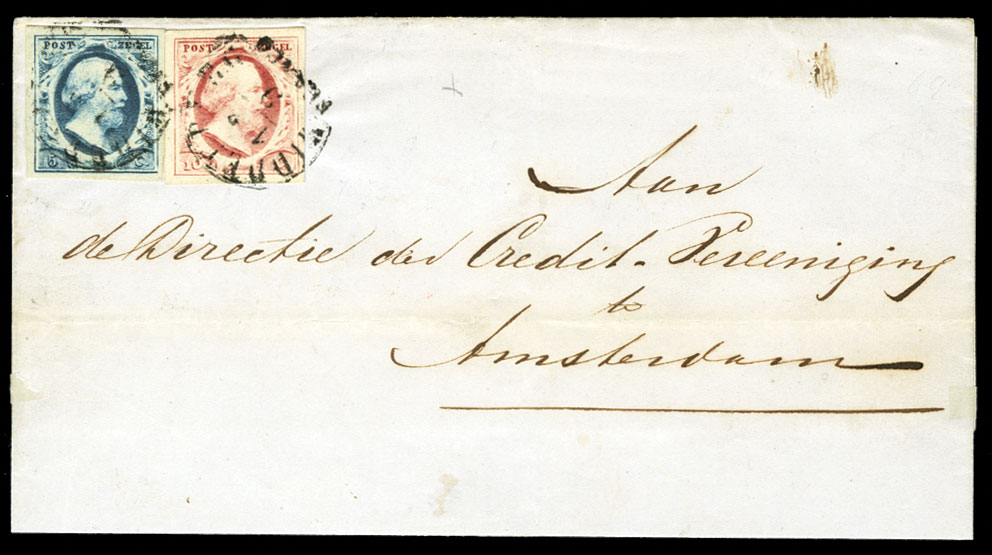 POST ZEGEL
5 C
POST ZEGEL
10
Aan
de Directie der Credit-Vereeniging
te
Amsterdam